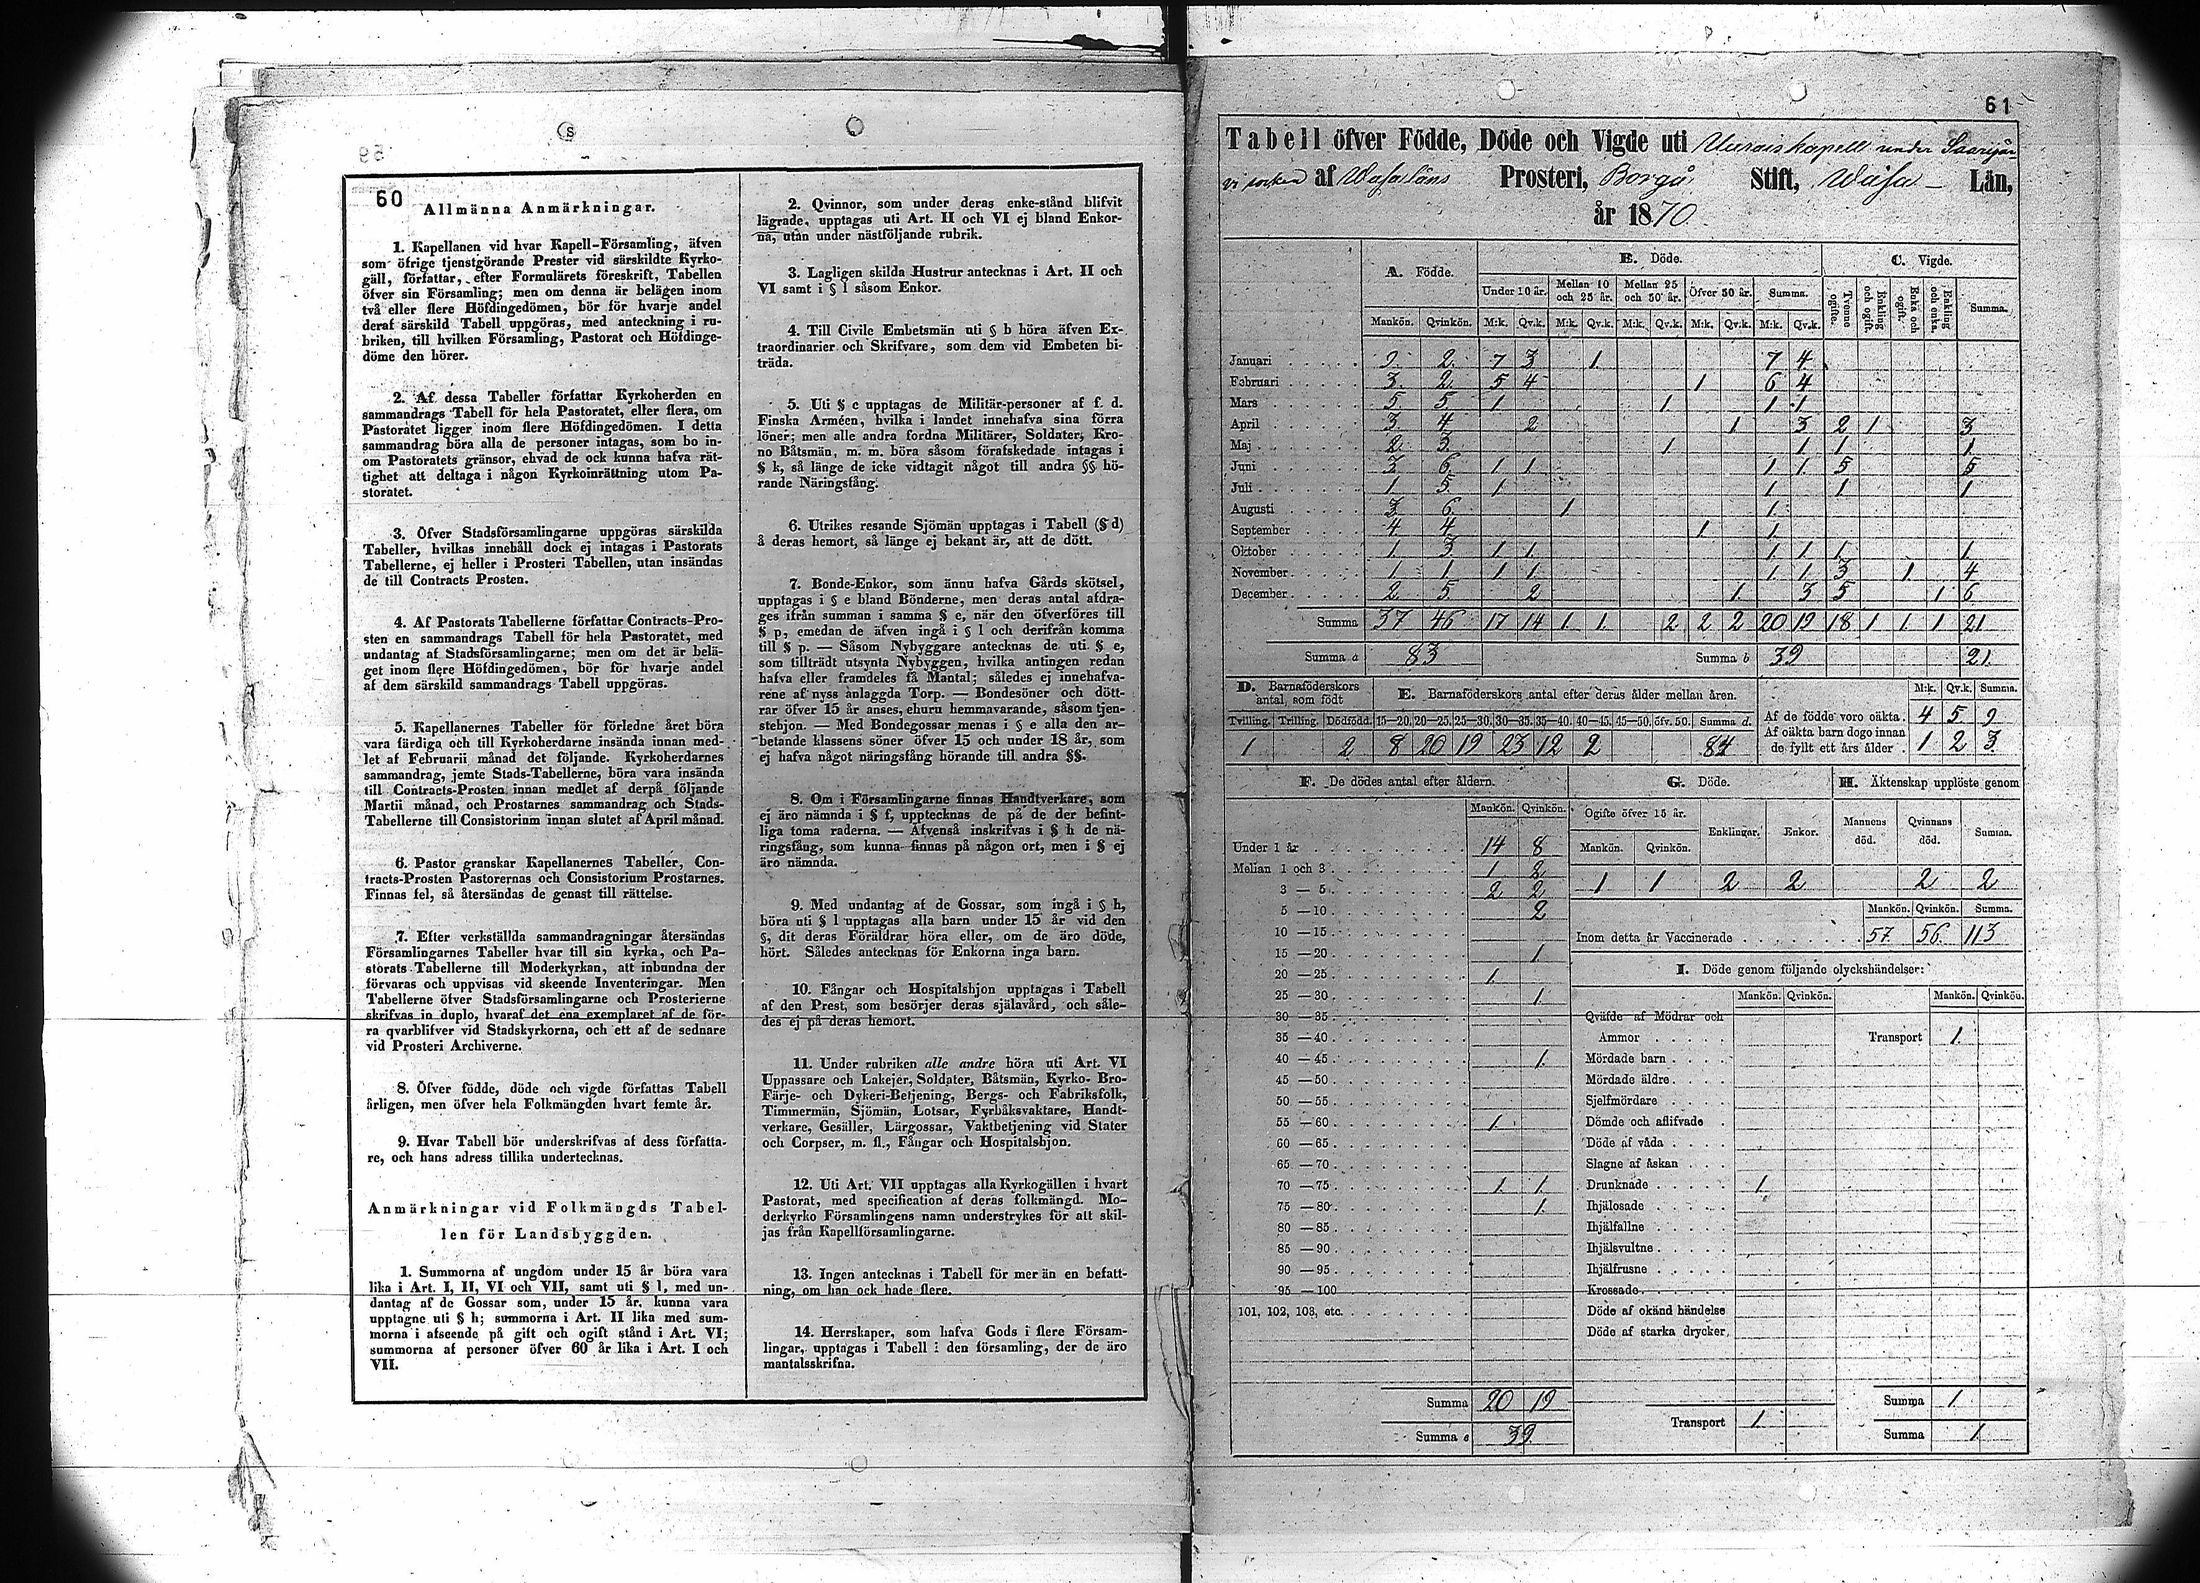 60
Allmänna Anmärkningar.
1. Kapellanen vid hvar Kapell-Församling, äfven
som öfrige tjenstgörande Prester vid särskildte Kyrko-
gäll, författar, efter Formulärets föreskrift, Tabellen
öfver sin Församling; men om denna är belägen inom
två eller flere Höfdingedömen, bör för hvarje andel
deraf särskild Tabell uppgöras, med anteckning i ru-
briken, till hvilken Församling, Pastorat och Höfdinge-
döme den hörer.
2. Af dessa Tabeller författar Kyrkoherden en
sammandrags Tabell för hela Pastoratet, eller flera, om
Pastoratet ligger inom flere Höfdingedömen. I detta
sammandrag böra alla de personer intagas, som bo in-
om Pastoratets gränsor, ehvad de ock kunna hafva rät-
tighet att deltaga i någon Kyrkoinrättning utom Pa-
storatet.
3. Öfver Stadsförsamlingarne uppgöras särskilda
Tabeller, hvilkas innehåll dock ej intagas i Pastorats
Tabellerne, ej heller i Prosteri Tabellen, utan insändas
de till Contracts Prosten.
4. Af Pastorats Tabellerne författar Contracts-Pro-
sten en sammandrags Tabell för hela Pastoratet, med
undantag af Stadsförsamlingarne; men om det är belä-
get inom flere Höfdingedömen, bör för hvarje andel
af dem särskild sammandrags Tabell uppgöras.
5. Kapellanernes Tabeller för förledne året böra
vara färdiga och till Kyrkoherdarne insända innan med-
let af Februarii månad det följande. Kyrkoherdarnes
sammandrag, jemte Stads-Tabellerne, böra vara insända
till Contracts-Prosten innan medlet af derpå följande
Martii månad, och Prostarnes sammandrag och Stads-
Tabellerne till Consistorium innan slutet af April månad.
6. Pastor granskar Kapellanernes Tabeller, Con-
tracts-Prosten Pastorernas och Consistorium Prostarnes.
Finnas fel, så återsändas de genast till rättelse.
7. Efter verkställda sammandragningar återsändas
Församlingarnes Tabeller hvar till sin kyrka, och Pa-
storats Tabellerne till Moderkyrkan, att inbundna der
förvaras och uppvisas vid skeende Inventeringar. Men
Tabellerne öfver Stadsförsamlingarne och Prosterierne
skrifvas in duplo, hvaraf det ena exemplaret af de för-
ra qvarblifver vid Stadskyrkorna, och ett af de sednare
vid Prosteri Archiverne.
8. Öfver födde, döde och vigde författas Tabell
årligen, men öfver hela Folkmängden hvart femte år.
9. Hvar Tabell bör underskrifvas af dess författa-
re, och hans adress tillika undertecknas.
Anmärkningar vid Folkmängds Tabel-
len för Landsbyggden.
1. Summorna af ungdom under 15 år böra vara
lika i Art. I, II, VI och VII, samt uti § l, med un-
dantag af de Gossar som, under 15 år, kunna vara
upptagne uti § h; summorna i Art. II lika med sum-
morna i afseende på gift och ogift stånd i Art. VI;
summorna af personer öfver 60 år lika i Art. I och
VII.
2. Qvinnor, som under deras enke-stånd blifvit
lägrade, upptagas uti Art. II och VI ej bland Enkor-
na, utan under nästföljande rubrik.
3. Lagligen skilda Hustrur antecknas i Art. II och
VI samt i § l såsom Enkor.
4. Till Civile Embetsmän uti § b höra äfven Ex-
traordinarier och Skrifvare, som dem vid Embeten bi-
träda.
5. Uti § c upptagas de Militär-personer af f. d.
Finska Arméen, hvilka i landet innehafva sina förra
löner; men alle andra fordna Militärer, Soldater, Kro-
no Båtsmän, m. m. böra såsom förafskedade intagas i
§ k, så länge de icke vidtagit något till andra §§ hö-
rande Näringsfång.
6. Utrikes resande Sjömän upptagas i Tabell (§ d)
å deras hemort, så länge ej bekant är, att de dött.
7. Bonde-Enkor, som ännu hafva Gårds skötsel,
upptagas i § e bland Bönderne, men deras antal afdra-
ges ifrån summan i samma § e, när den öfverföres till
§ p, emedan de äfven ingå i § l och derifrån komma
till § p. — Såsom Nybyggare antecknas de uti § e,
som tillträdt utsynta Nybyggen, hvilka antingen redan
hafva eller framdeles få Mantal; således ej innehafva-
rene af nyss anlaggda Torp. — Bondesöner och dött-
rar öfver 15 år anses, ehuru hemmavarande, såsom tjen-
stehjon. — Med Bondegossar menas i § e alla den ar-
betande klassens söner öfver 15 och under 18 år, som
ej hafva något näringsfång hörande till andra §§.
8. Om i Församlingarne finnas Handtverkare, som
ej äro nämnda i § f, upptecknas de på de der befint-
liga toma raderna. — Äfvenså inskrifvas i § h de nä-
ringsfång, som kunna finnas på någon ort, men i § ej
äro nämnda.
9. Med undantag af de Gossar, som ingå i § h,
böra uti § l upptagas alla barn under 15 år vid den
§, dit deras Föräldrar höra eller, om de äro döde,
hört. Således antecknas för Enkorna inga barn.
10. Fångar och Hospitalshjon upptagas i Tabell
af den Prest, som besörjer deras själavård, och såle-
des ej på deras hemort.
11. Under rubriken alle andre höra uti Art. VI
Uppassare och Lakejer, Soldater, Båtsmän, Kyrko- Bro-
Färje- och Dykeri-Betjening, Bergs- och Fabriksfolk,
Timmermän, Sjömän, Lotsar, Fyrbåksvaktare, Handt-
verkare, Gesäller, Lärgossar, Vaktbetjening vid Stater
och Corpser, m. fl., Fångar och Hospitalshjon.
12. Uti Art. VII upptagas alla Kyrkogällen i hvart
Pastorat, med specification af deras folkmängd. Mo-
derkyrko Församlingens namn understrykes för att skil-
jas från Kapellförsamlingarne.
13. Ingen antecknas i Tabell för mer än en befatt-
ning, om han ock hade flere.
14. Herrskaper, som hafva Gods i flere Försam-
lingar, upptagas i Tabell i den församling, der de äro
mantalsskrifna.
61
Tabell öfver Födde, Döde och Vigde uti Uurais kapell under Saarijär-
vi socken af Wasa läns Prosteri, Borgå Stift, Wasa Län,
år 1870
A. Födde. B. Döde. C. Vigde.
Under 10 år. Mellan 10 och 25 år. Mellan 25 och 50 år. Öfver 50 år. Summa. Tvenne ogifte. Enkling och ogift. Enka och ogift. Enkling och enka. Summa.
Mankön. Qvinkön. M:k. Qv.k. M:k. Qv.k. M:k. Qv.k. M:k. Qv.k. M:k. Qv.k.
Januari 9 2 7 3 1 7 4
Februari 3 2 5 4 1 6 4
Mars 5 5 1 1 1 1
April 3 4 2 1 3 2 1 3
Maj 2 3 1 1 1 1
Juni 3 6 1 1 1 1 5 5
Juli 1 5 1 1 1 1
Augusti 3 6 1 1
September 4 4 1 1
Oktober 1 3 1 1 1 1 1 1
November 1 1 1 1 1 1 3 1 4
December 2 5 2 1 3 5 1 6
Summa 37 46 17 14 1 1 2 2 2 20 19 18 1 1 1 21
Summa a 83 Summa b 39 21
D. Barnaföderskors antal, som födt
E. Barnaföderskors antal efter deras ålder mellan åren.
M:k. Qv.k. Summa.
Tvilling. Trilling. Dödfödd. 15—20. 20—25. 25—30. 30—35. 35—40. 40—45. 45—50. öfv. 50. Summa d.
1 2 8 20 19 23 12 2 84
Af de födde voro oäkta 4 5 9
Af oäkta barn dogo innan
de fyllt ett års ålder 1 2 3
F. De dödes antal efter åldern.
Mankön. Qvinkön.
Under 1 år 14 8
Mellan 1 och 3 1 2
3 — 5 2 2
5 — 10 2
10 — 15
15 — 20 1
20 — 25 1
25 — 30 1
30 — 35
35 — 40
40 — 45 1
45 — 50
50 — 55
55 — 60 1
60 — 65
65 — 70
70 — 75 1 1
75 — 80 1
80 — 85
85 — 90
90 — 95
95 — 100
101, 102, 103, etc.
Summa 20 19
Summa e 39
G. Döde.
Ogifte öfver 15 år. Enklingar. Enkor.
Mankön. Qvinkön.
1 1 2 2
H. Äktenskap upplöste genom
Mannens död. Qvinnans död. Summa.
2 2
Mankön. Qvinkön. Summa.
Inom detta år Vaccinerade 57 56 113
I. Döde genom följande olyckshändelser:
Mankön. Qvinkön. Mankön. Qvinkön.
Qväfde af Mödrar och
Ammor Transport 1
Mördade barn
Mördade äldre
Sjelfmördare
Dömde och aflifvade
Döde af våda
Slagne af åskan
Drunknade 1
Ihjälosade
Ihjälfallne
Ihjälsvultne
Ihjälfrusne
Krossade
Döde af okänd händelse
Döde af starka drycker.
Summa 1
Transport 1
Summa 1